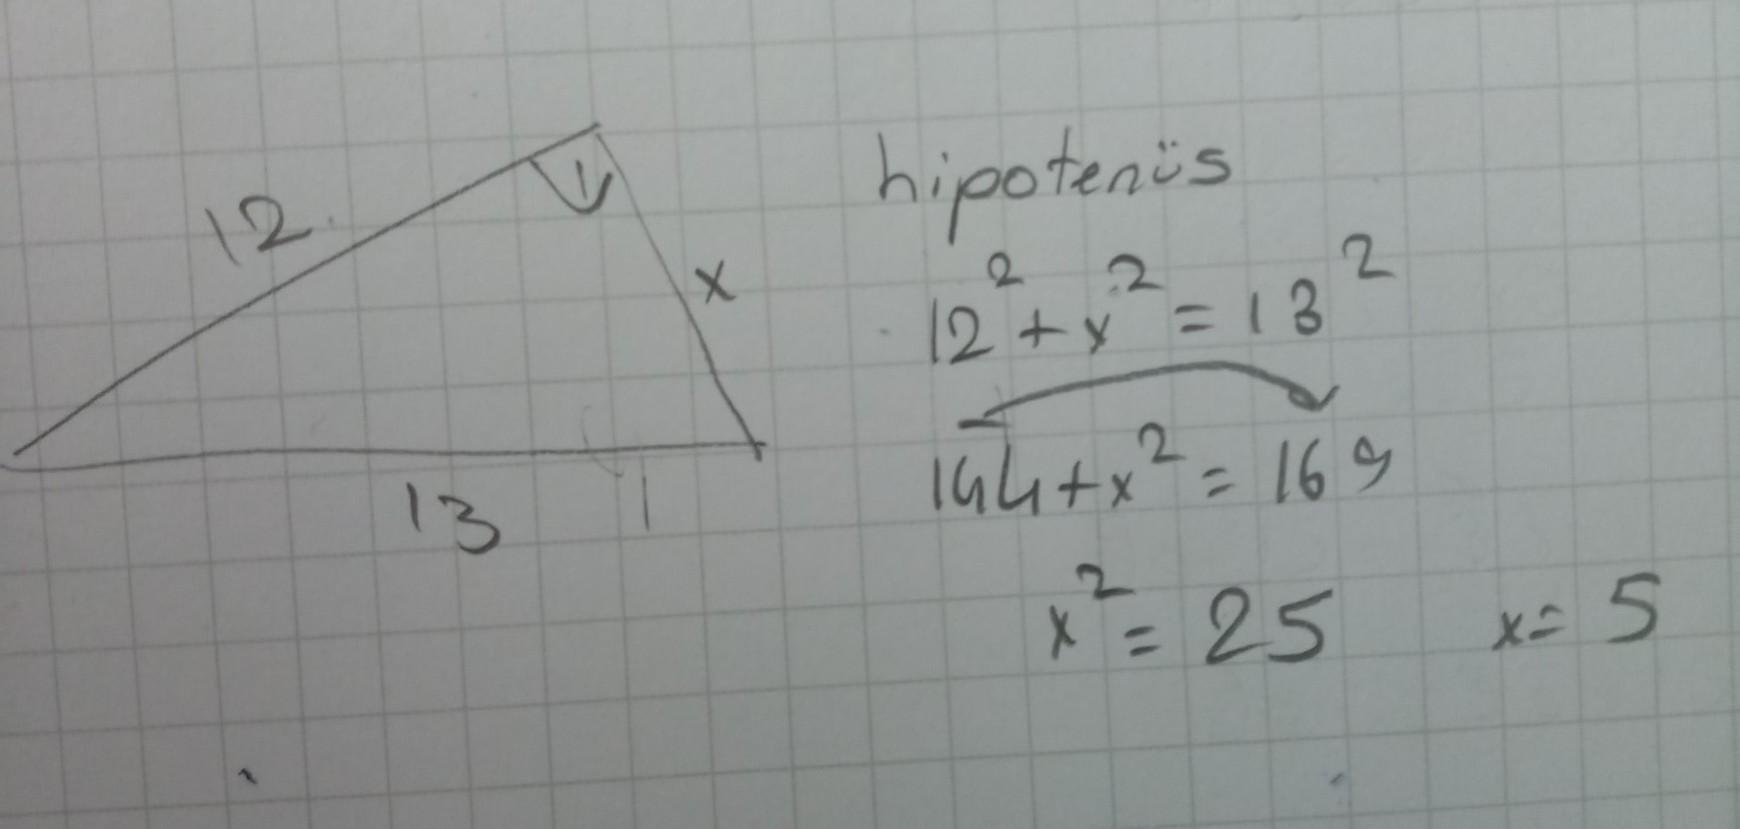 12
x
13
hipotenüs
12² + x² = 13²
144 + x² = 169
x² = 25 x = 5